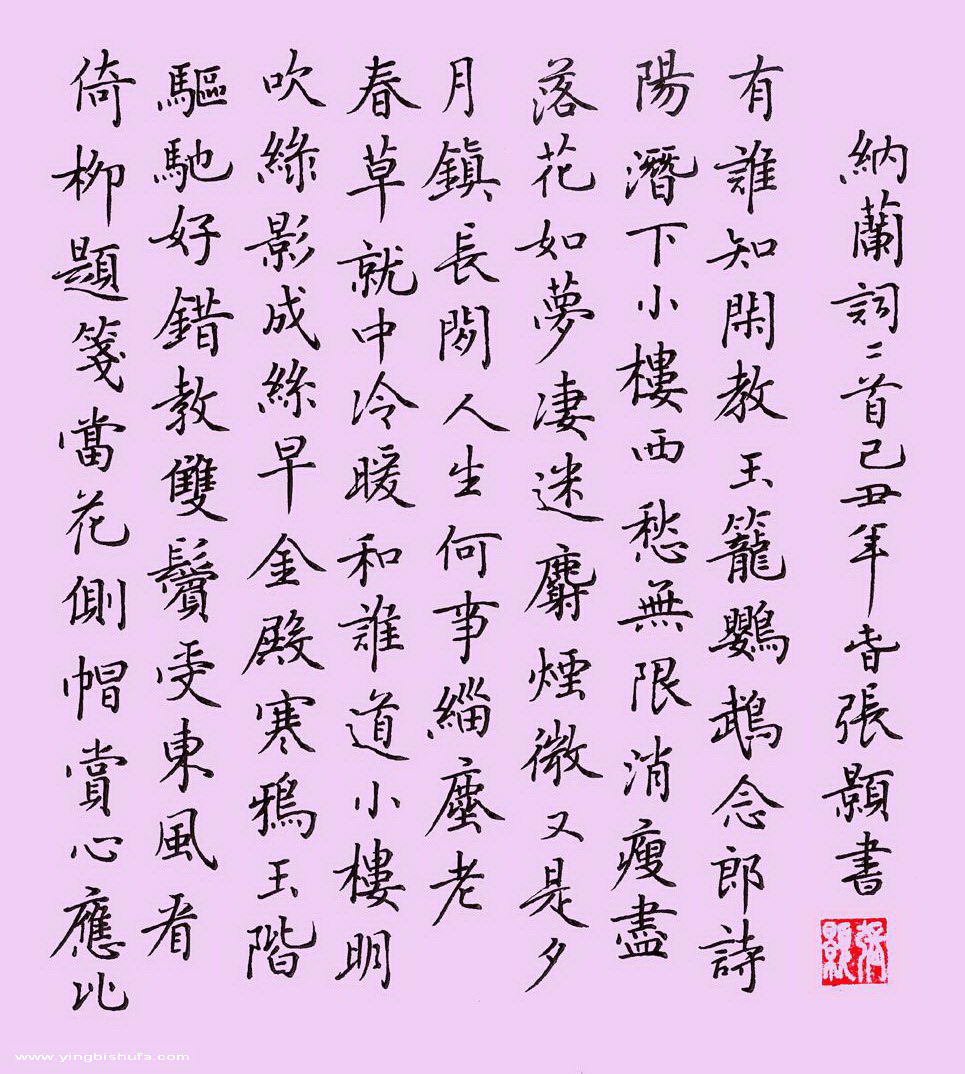 倚柳題箋噹花側帽賞心應比
驅馳好錯教雙鬢受東風看
吹綠影成絲早金殿寒鴉玉階
春草就中冷暖和誰道小樓明
月鎮長閒人生何事緇塵老
落花如夢凄迷麝煙微又是夕
陽潛下小樓西愁無限消瘦盡
有誰知閑教玉籠鸚鵡念郎詩
納蘭詞二首己丑年旾張顥書
張顥
www.yingbishufa.com